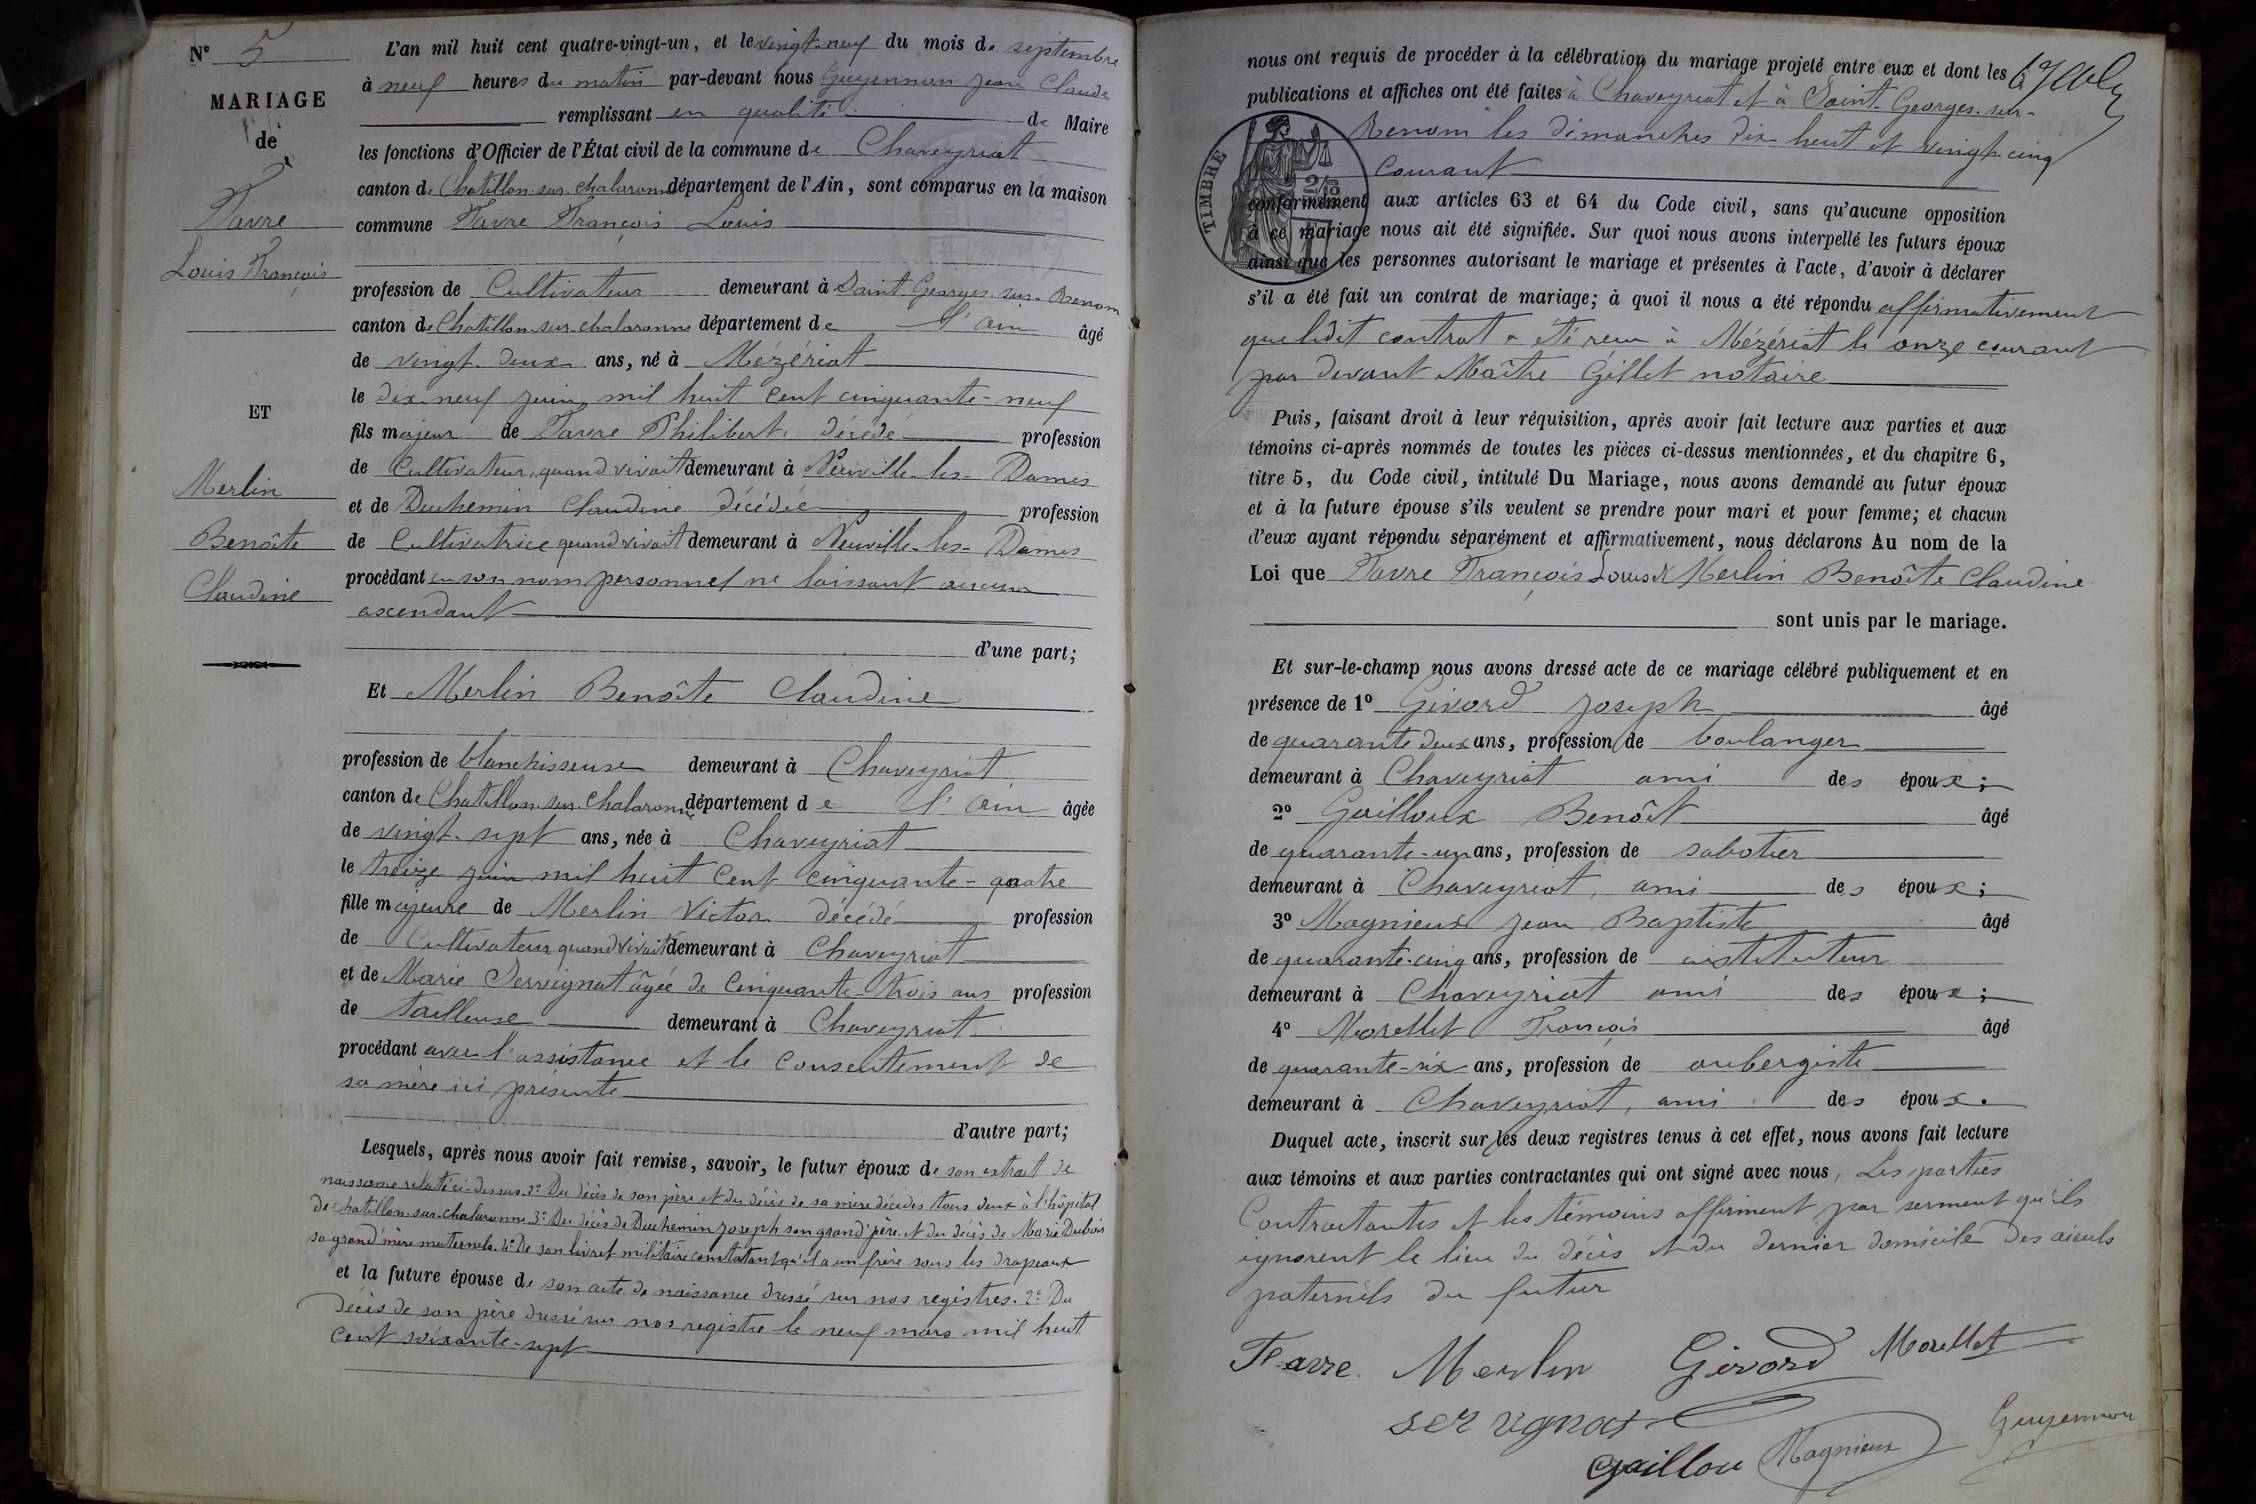 N° 5
MARIAGE
de
Favre
Louis François
ET
Merlin
Benoîte
Claudine
L'an mil huit cent quatre-vingt-un, et le vingt-neuf du mois de septembre
à neuf heures du matin par-devant nous Guyennon Jean Claude
remplissant en qualité de Maire
les fonctions d'Officier de l'État civil de la commune de Chaveyriat
canton de Chatillon-sur-chalaronne département de l'Ain, sont comparus en la maison
commune Favre François Louis
profession de Cultivateur demeurant à Saint-Georges-sur-Renom
canton de Chatillon-sur-chalaronne département de l'Ain âgé
de vingt-deux ans, né à Mézériat
le dix-neuf juin mil huit cent cinquante-neuf
fils majeur de Favre Philibert décédé profession
de Cultivateur, quand vivait demeurant à Neuville-les-Dames
et de Duchemin Claudine décédée profession
de Cultivatrice quand vivait demeurant à Neuville-les-Dames
procédant en son nom personnel ne laissant aucun
ascendant
d'une part;
Et Merlin Benoîte Claudine
profession de blanchisseuse demeurant à Chaveyriat
canton de Chatillon-sur-chalaronne département de l'Ain âgée
de vingt-sept ans, née à Chaveyriat
le treize juin mil huit cent cinquante-quatre
fille majeure de Merlin Victor décédé profession
de Cultivateur quand vivait demeurant à Chaveyriat
et de Marie Servignat âgée de Cinquante-trois ans profession
de tailleuse demeurant à Chaveyriat
procédant avec l'assistance et le consentement de
sa mère ici présente
d'autre part;
Lesquels, après nous avoir fait remise, savoir, le futur époux de son extrait de
naissance relaté ci-dessus. 2° Du décès de son père et du décès de sa mère décédés tous deux à l'hôpital
de Chatillon-sur-chalaronne. 3° Du décès de Duchemin Joseph son grand'père et du décès de Marie Dubois
sa grand'mère maternels. 4° De son livret militaire constatant qu'il a un frère sous les drapeaux
et la future épouse de son acte de naissance dressé sur nos registres. 2° Du
décès de son père dressé sur nos registre le neuf mars mil huit
cent soixante-sept
nous ont requis de procéder à la célébration du mariage projeté entre eux et dont les
publications et affiches ont été faites à Chaveyriat et à Saint-Georges-sur-
Renom les dimanches dix-huit et vingt-cinq
courant
TIMBRE
conformément aux articles 63 et 64 du Code civil, sans qu'aucune opposition
à ce mariage nous ait été signifiée. Sur quoi nous avons interpellé les futurs époux
ainsi que les personnes autorisant le mariage et présentes à l'acte, d'avoir à déclarer
s'il a été fait un contrat de mariage; à quoi il nous a été répondu affirmativement
que ledit contrat a été reçu à Mézériat le onze courant
par devant Maître Gillet notaire
Puis, faisant droit à leur réquisition, après avoir fait lecture aux parties et aux
témoins ci-après nommés de toutes les pièces ci-dessus mentionnées, et du chapitre 6,
titre 5, du Code civil, intitulé Du Mariage, nous avons demandé au futur époux
et à la future épouse s'ils veulent se prendre pour mari et pour femme; et chacun
d'eux ayant répondu séparément et affirmativement, nous déclarons Au nom de la
Loi que Favre François Louis et Merlin Benoîte Claudine
sont unis par le mariage.
Et sur-le-champ nous avons dressé acte de ce mariage célébré publiquement et en
présence de 1° Givord Joseph âgé
de quarante deux ans, profession de boulanger
demeurant à Chaveyriat ami des époux;
2° Gailloux Benoît âgé
de quarante-un ans, profession de sabotier
demeurant à Chaveyriat, ami des époux;
3° Magnieux Jean Baptiste âgé
de quarante-cinq ans, profession de instituteur
demeurant à Chaveyriat ami des époux;
4° Morellet François âgé
de quarante-six ans, profession de aubergiste
demeurant à Chaveyriat, ami des époux.
Duquel acte, inscrit sur les deux registres tenus à cet effet, nous avons fait lecture
aux témoins et aux parties contractantes qui ont signé avec nous, Les parties
Contractantes et les témoins affirment par serment qu'ils
ignorent le lieu du décès et du dernier domicile des aïeuls
paternels du futur
Favre Merlin Givord Morellet
servignat
Guyennon
gaillou Magnieux